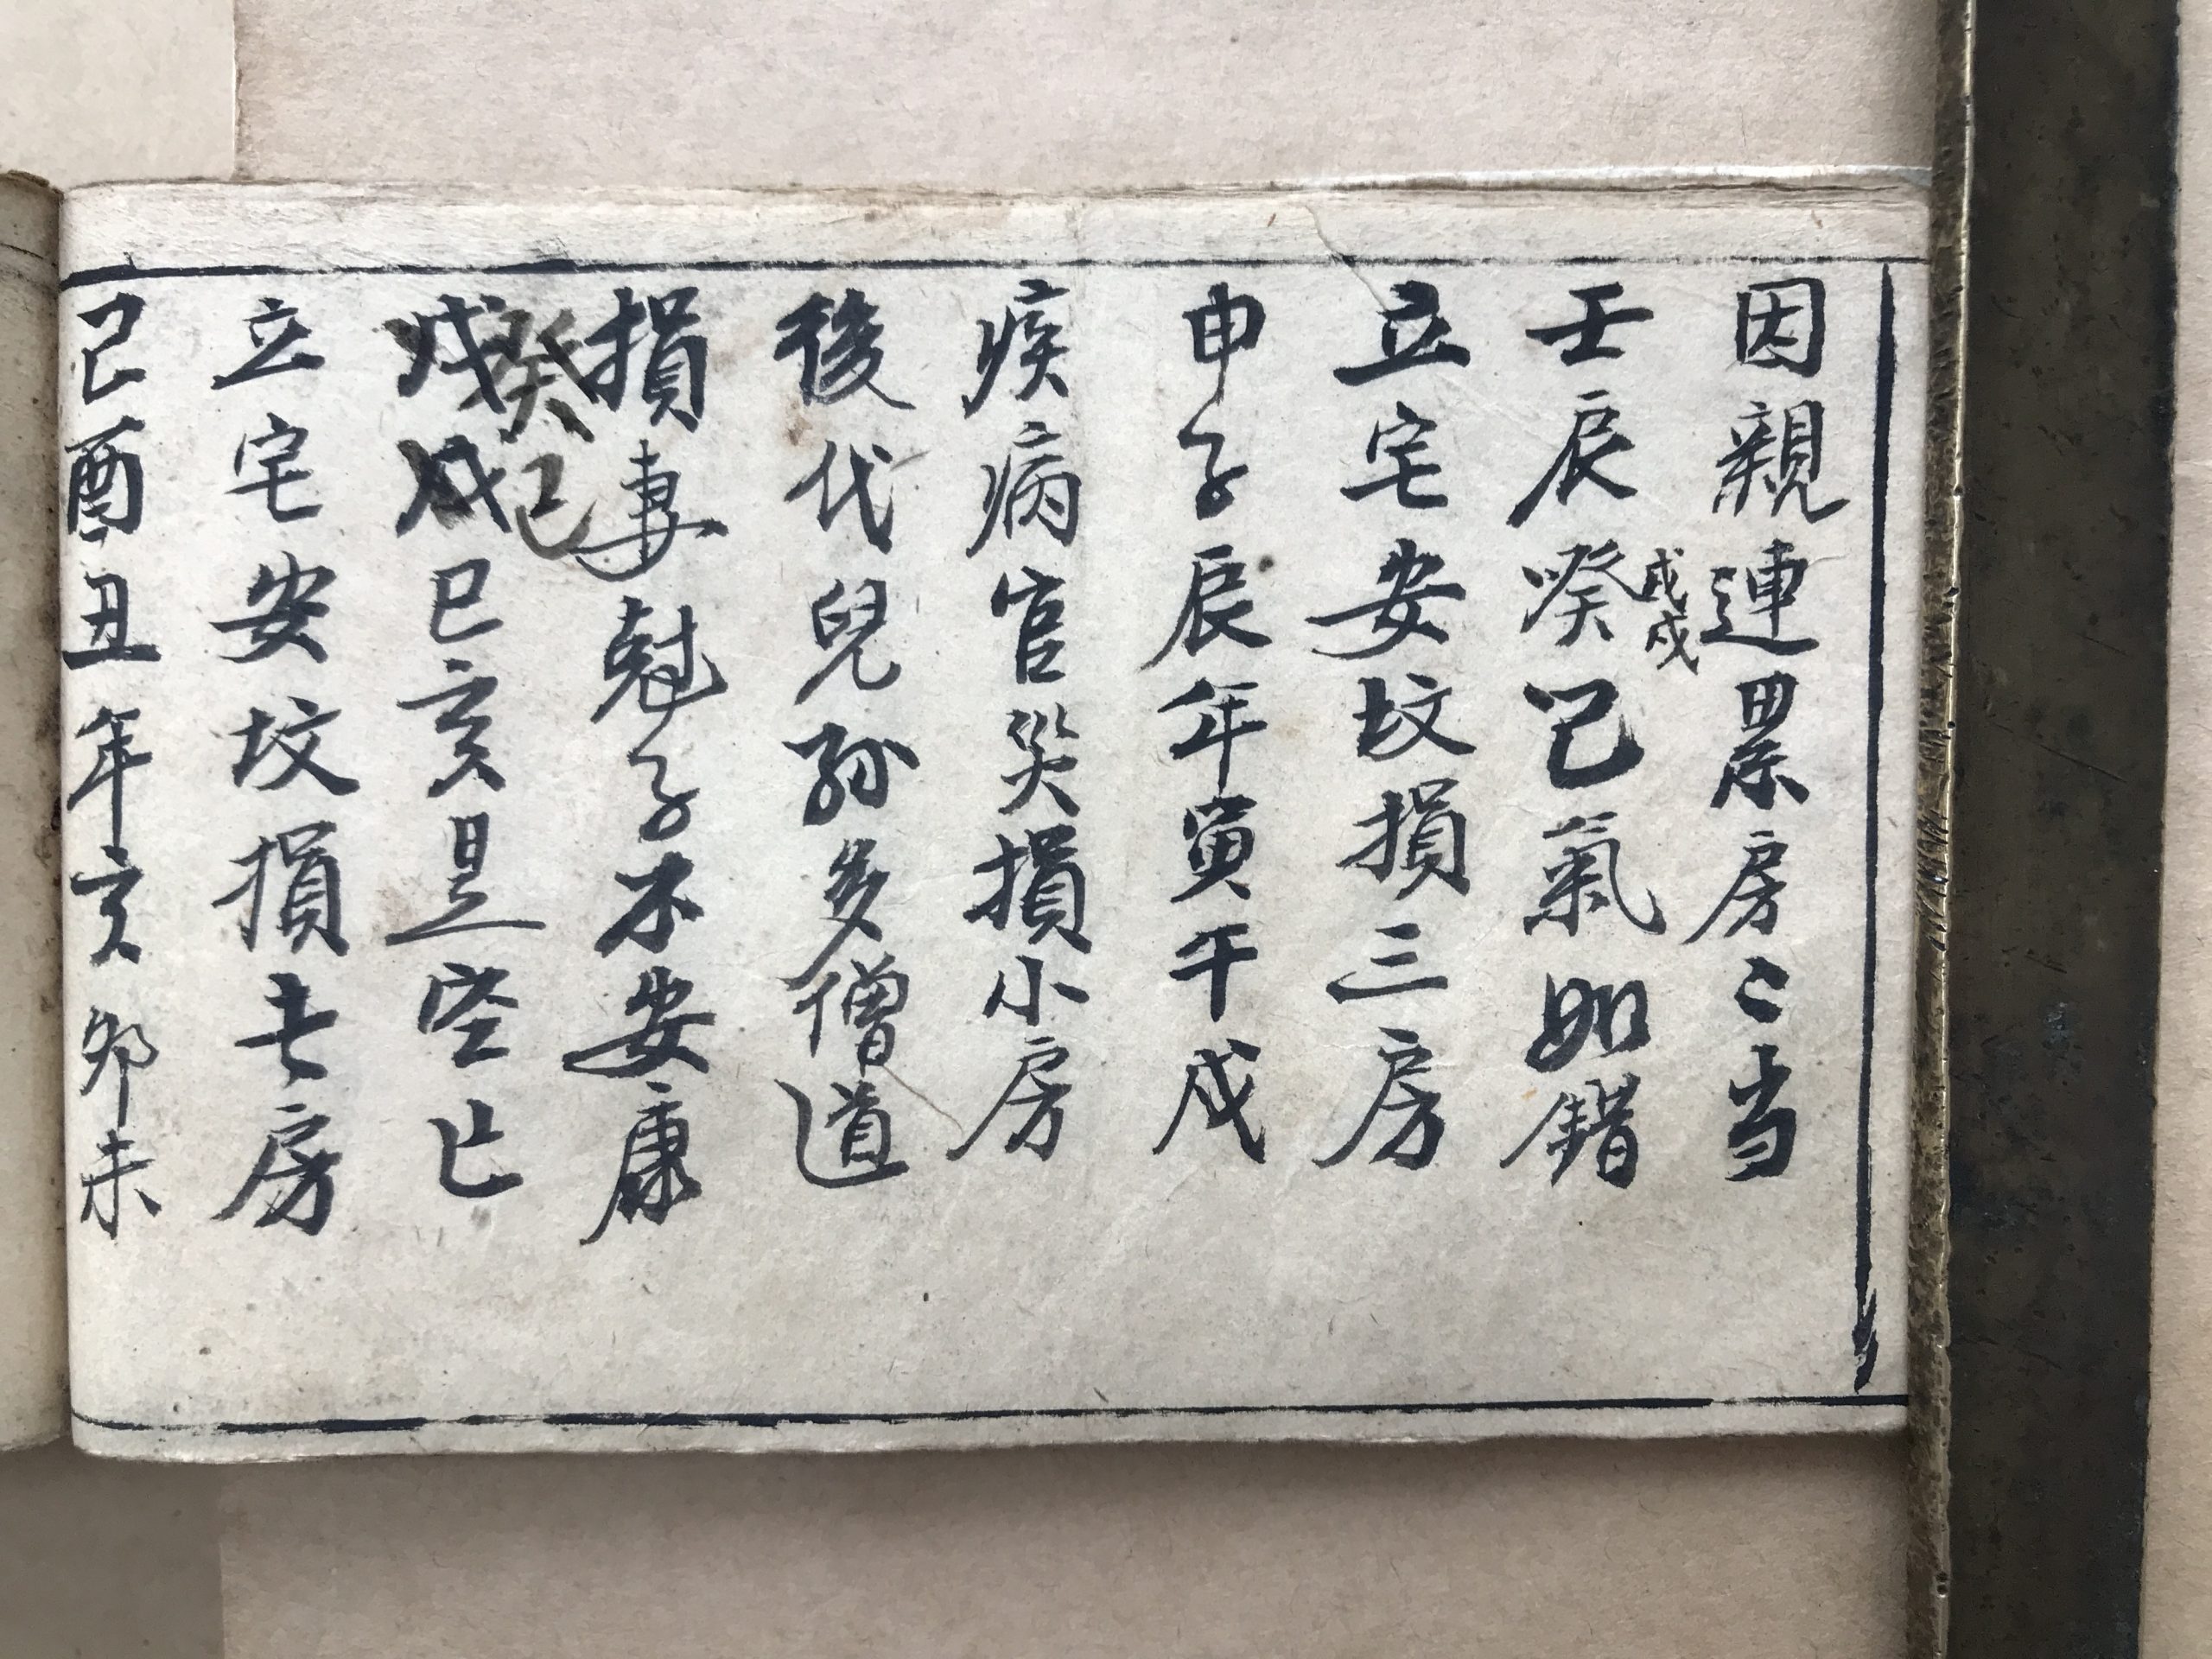 因親連累房〻当
壬辰癸巳氣如錯
戊戌
立宅安坟損三房
申子辰年寅午戌
疾病官災損小房
後代兒孫多僧道
損妻尅子不安康
癸巳
戊戌巳亥是空亡
立宅安坟損長房
己酉丑年亥卯未